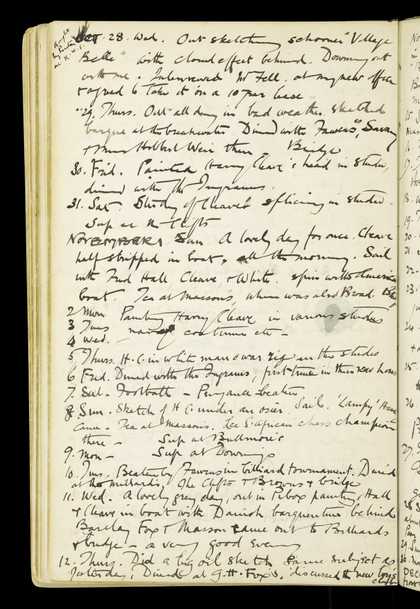 Oct 28. Wed. Out sketching schooner "Village
Belle" with cloud effect behind. Downing out
with me. Interviewed Mr Fell. at my new office
& agreed to take it on a 10 year lease
29. Thurs. Out all day in bad weather. Sketched
barque at the breakwater Dined with
& Miss Hilbert Weir there Bridge
30. Frid. Painted Harry Cleave's head in studio,
dined with the Ingrams.
31. Sat. Study of Cleave splicing in studio
Sup at the Clifts
NOVEMBER 1 Sun A lovely day for once. Cleave
half stripped in boat, all the morning. Sail
with Fred Hall Cleave & White. spin with
boat Tea at Massons, where was also
2 Mon Painting Harry Cleave in various studies
3 Tues costume etc -
4 Wed.
5 Thurs. H.C. in white man o war rig in the studio
6 Frid. Dined with the Ingrams, first time in their new house
7. Sat - Football - Penzance beaten
8. Sun. Sketch of H C under an osier Sail. "Lampy"
came - Tea at Massons. S. African chess champion
there - Sup at Bullmore's
9. Mon - Sup at Downings
10. Tues. Beaten by in billiard tournament. Dined
at the Millards, the Clifts & Browns & bridge
11. Wed. A lovely grey day, out in Pebox painting Hall
& Cleave in boat with Danish barquentine behind
Barclay Fox & Masson came out to Billiards
& bridge - a very good Evening
12. Thurs. Did a big oil sketch same subject as
yesterday, Dined at G.H. Fox's, discussed the new boys